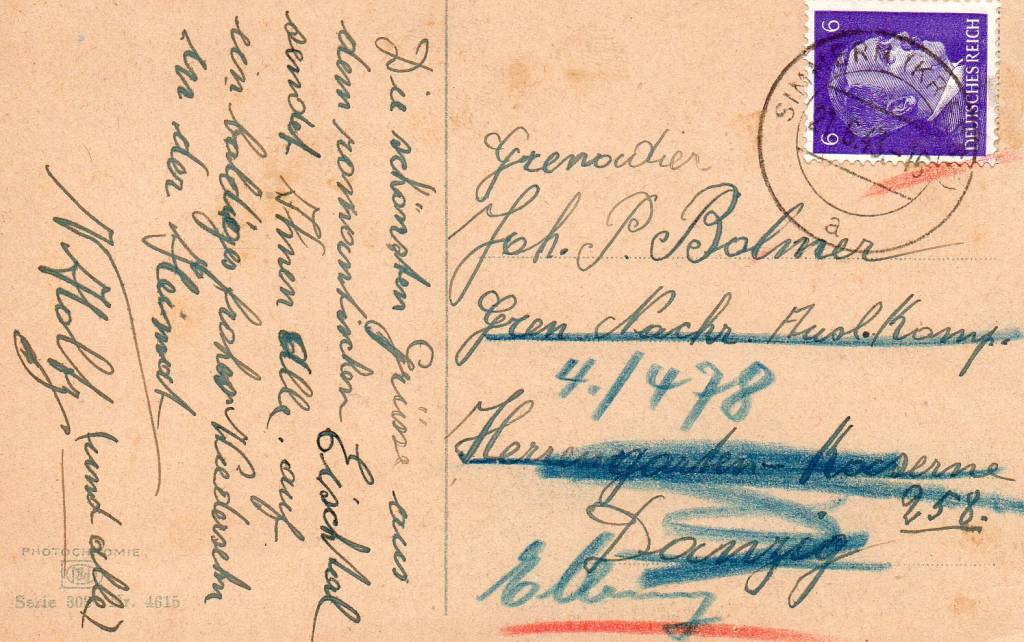 Die schönsten Grüsse aus
dem romantischen Eischthal
sendet Ihnen alle. auf
ein baldiges frohes Wiedersehn
in der Heimat
(und alle)
6
6
DEUTSCHES REICH
SIMMERN (
a
Grenadier
Joh. P. Bolmer
Gren. Nachr. Ausb. Komp.
4./478
Herrengarten-Kaserne
258.
Danzig
Elbing
PHOTOCHROMIE
Serie 4615